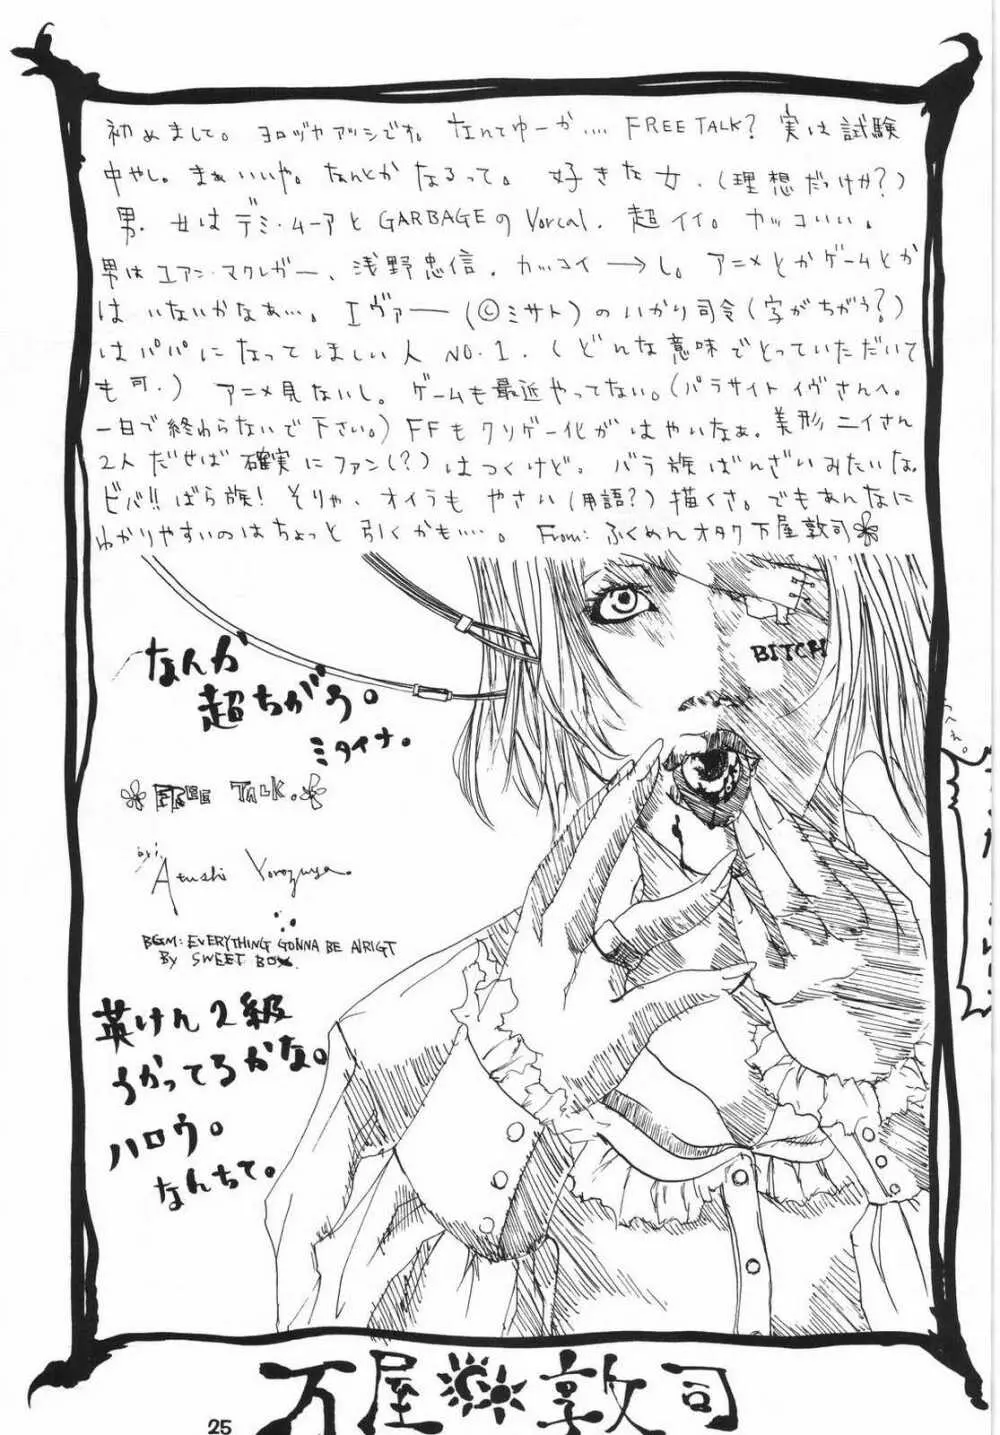 初めまして。ヨロヅヤアツシです。なんてゆーか.... FREE TALK? 実は試験
中やし。まぁいいや。なんとかなるって。好きな女.(理想だっけか?)
男. 女はデミ・ムーアとGARBAGEのVorcal. 超イイ。カッコいい。
男はユアン・マクレガー、浅野忠信. カッコイ→し。アニメとかゲームとか
はいないかなぁ…。エヴァー(©ミサト)のいかり司令(字がちがう?)
はパパになってほしい人NO.1.(どんな意味でとっていただいて
も可.) アニメ見ないし。ゲームも最近やってない。(パラサイトイヴさんへ。
一日で終わらないで下さい。)FFもクリゲー化がはやいなぁ。美形ニイさん
2人だせば確実にファン(?)はつくけど。バラ族ばんざいみたいな。
ビバ!!ばら族!そりゃ、オイラもやさい(用語?)描くさ。でもあんなに
わかりやすいのはちょっと引くかも….。From:ふくめんオタク万屋敦司
BITCH
なんか
超ちがう。
ミタイナ。
FREE TALK.
by.
Atushi Yorozuya.
BGM: EVERYTHING GONNA BE ALRIGT
BY SWEET BOX.
英けん2級
うかってるかな。
ハロウ。
なんちて。
万屋敦司
25